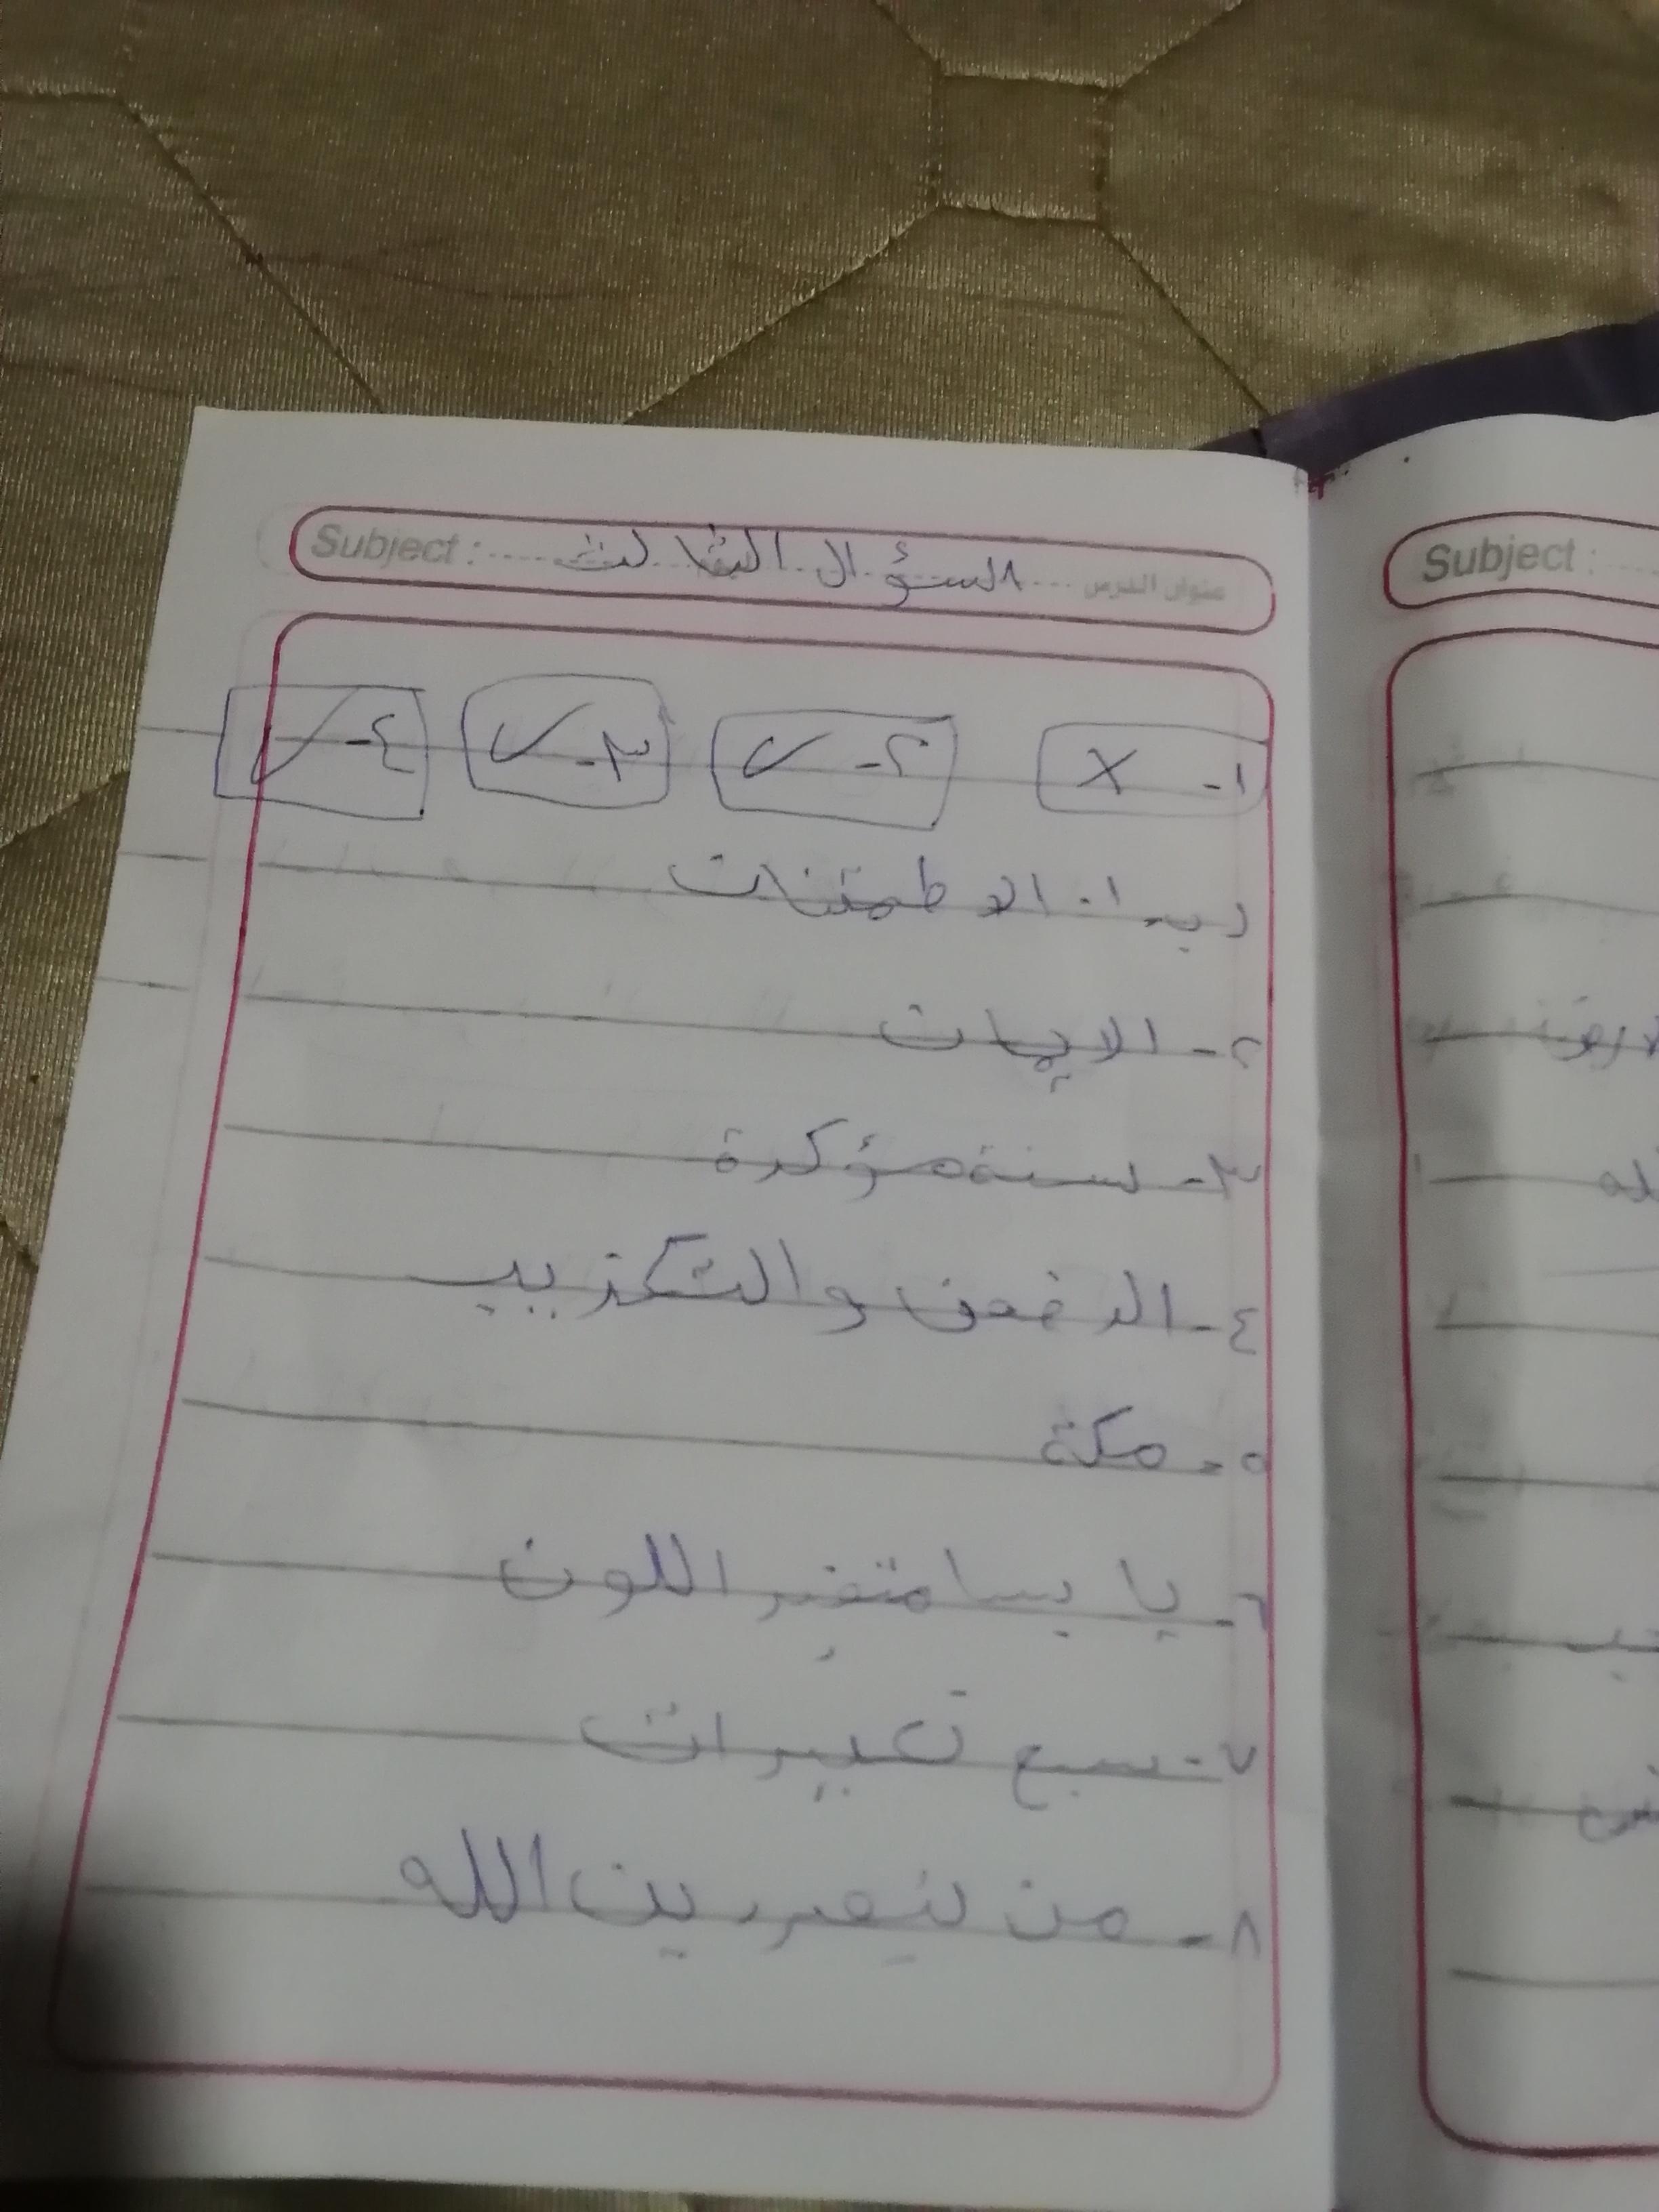 Subject : السؤال الثالث عنوان الدرس
١- X ٢- ✓ ٣- ✓ ٤- ✓
ب- ١- الاطمئنان
٢- الايمان
٣- سنة مؤكدة
٤- الضعف والتكذيب
٥- مكة
٦- يابسا متغير اللون
٧- سبع تكبيرات
٨- من الله
Subject :